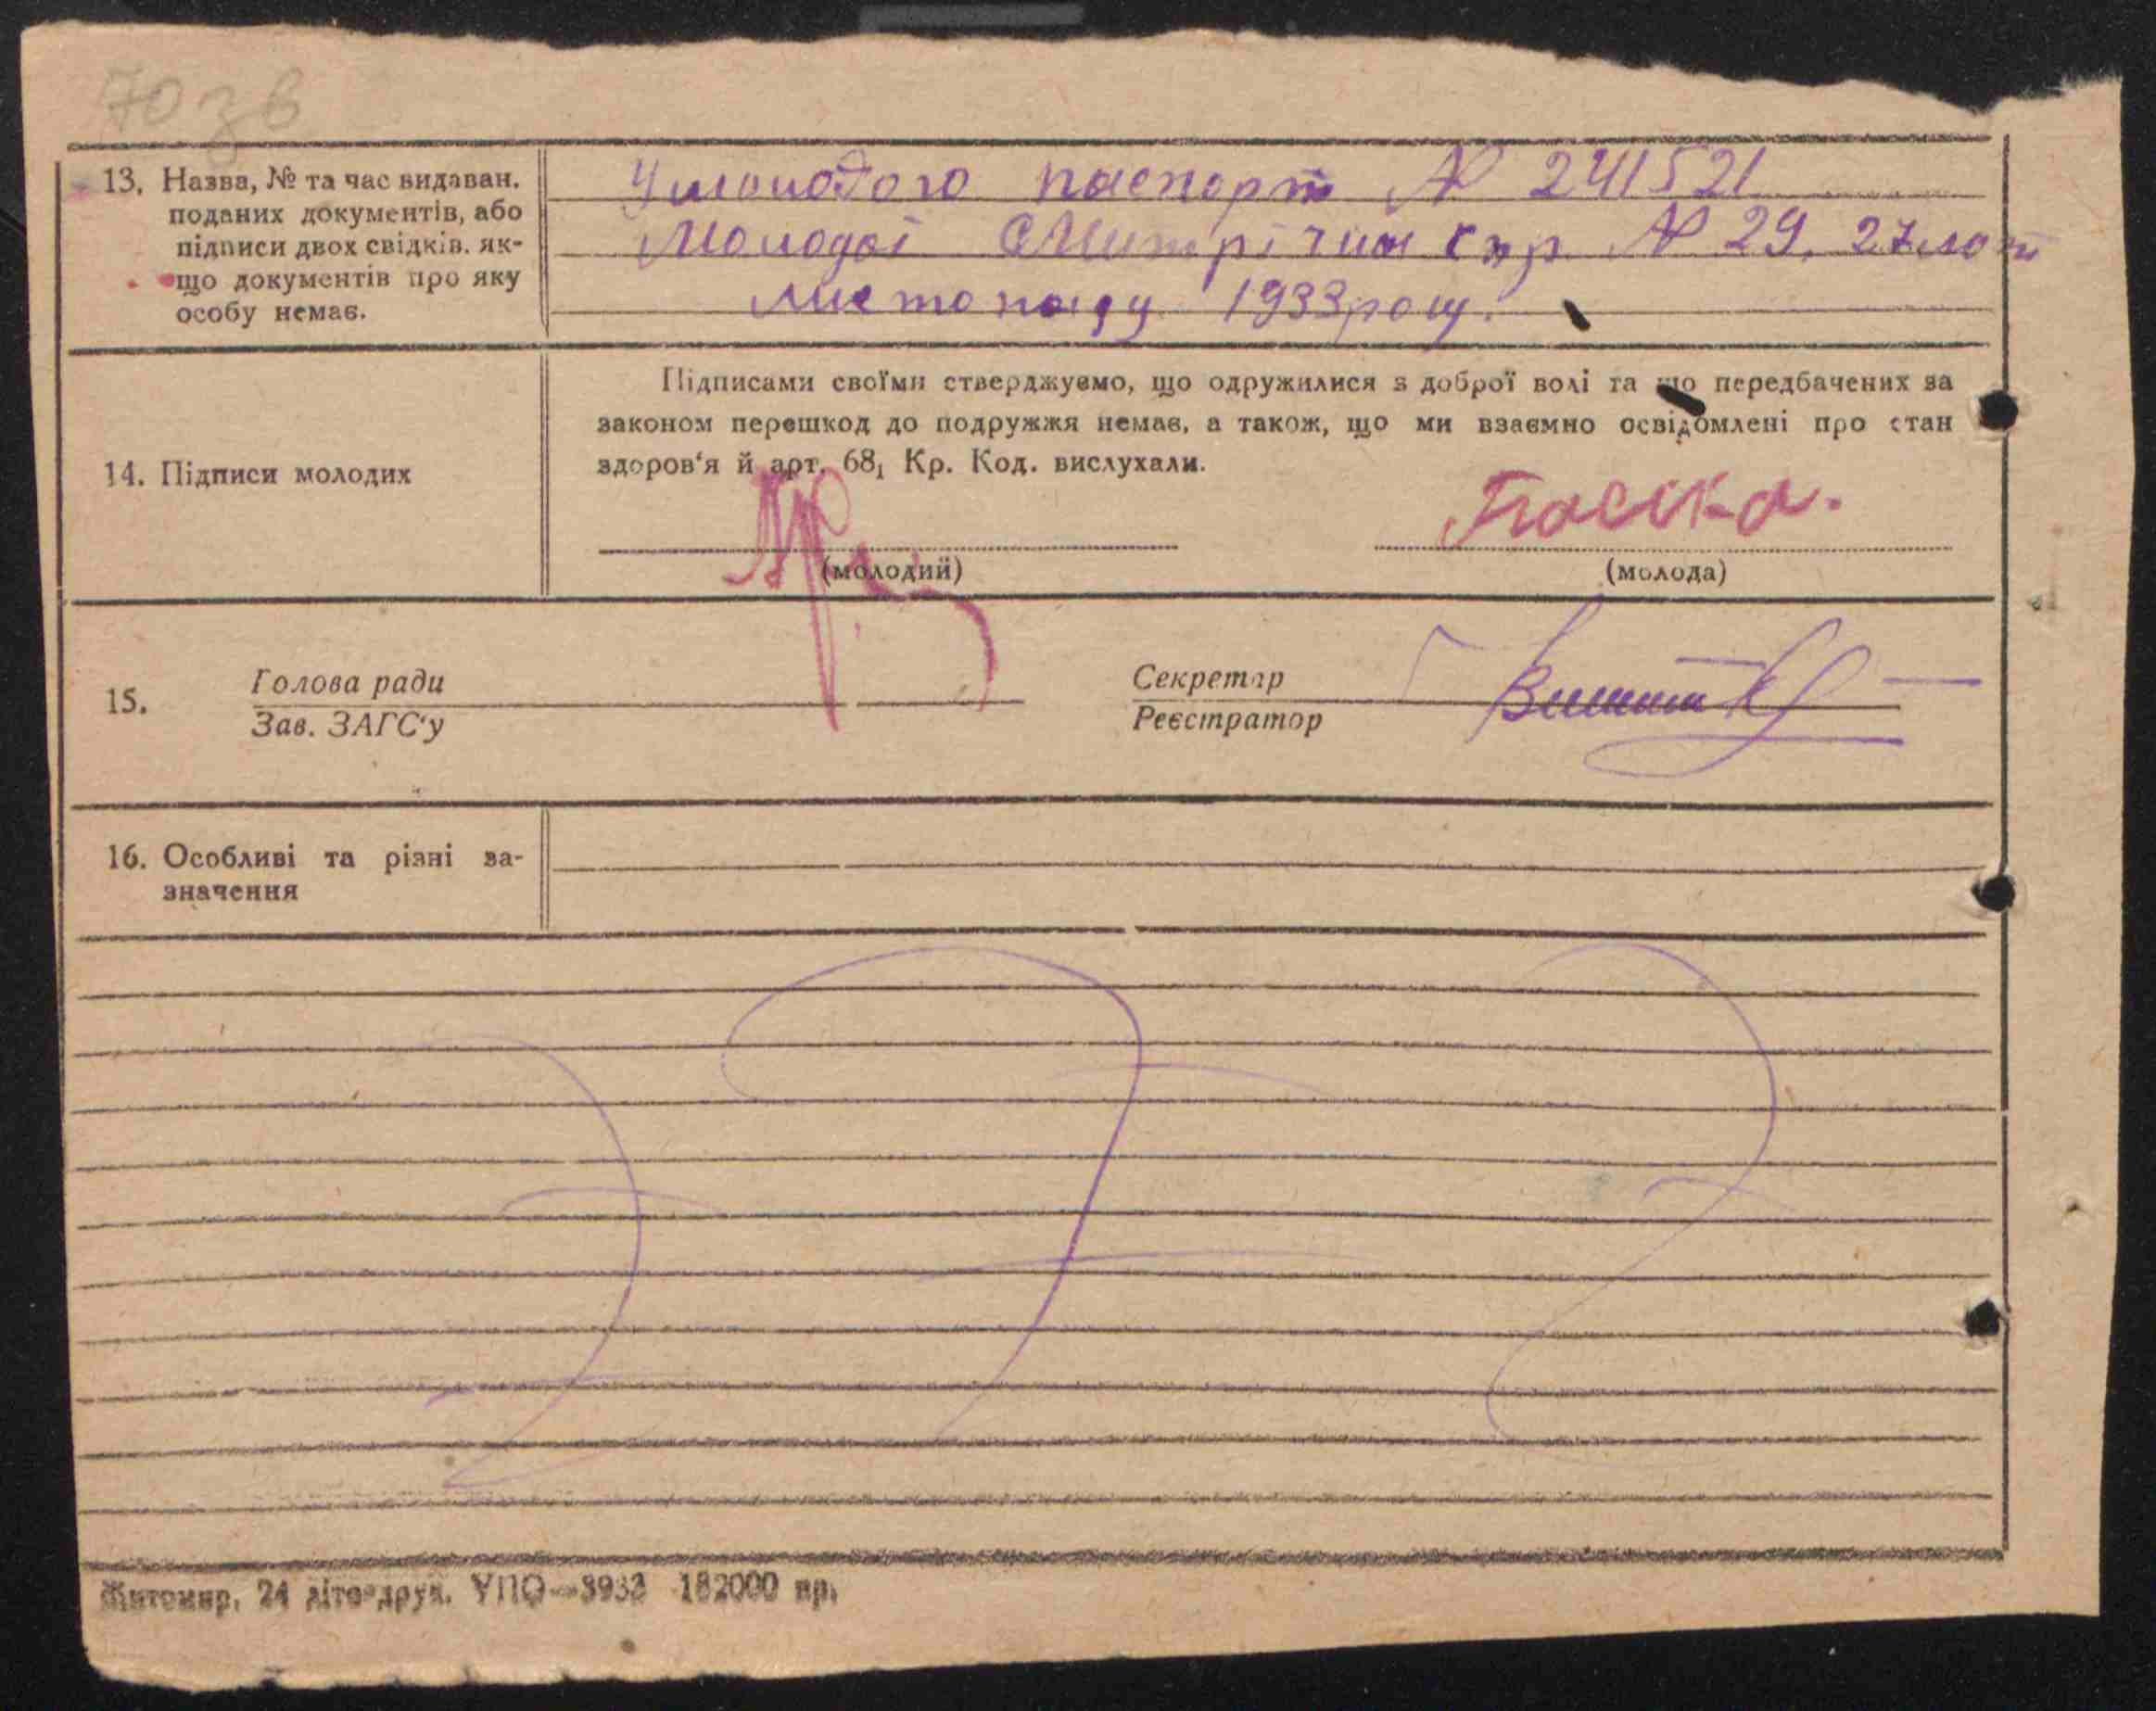 70 зв
13. Назва, № та час видаван.
поданих документів, або
підписи двох свідків. як-
що документів про яку
особу немає.
У молодого паспорт № 241521
Молодої метрічна спр. № 29. 27
листопаду 1933 року.
14. Підписи молодих
Підписами своїми стверджуємо, що одружилися з доброї волі та що передбачених за
законом перешкод до подружжя немає, а також, що ми взаємно освідомлені про стан
здоров'я й арт. 68, Кр. Код. вислухали.
(молодий)
(молода)
15.
Голова ради
Зав. ЗАГС'у
Секретар
Реєстратор
16. Особливі та різні за-
значення
Житомир, 24 літо-друк. УПО—3933 182000 пр.